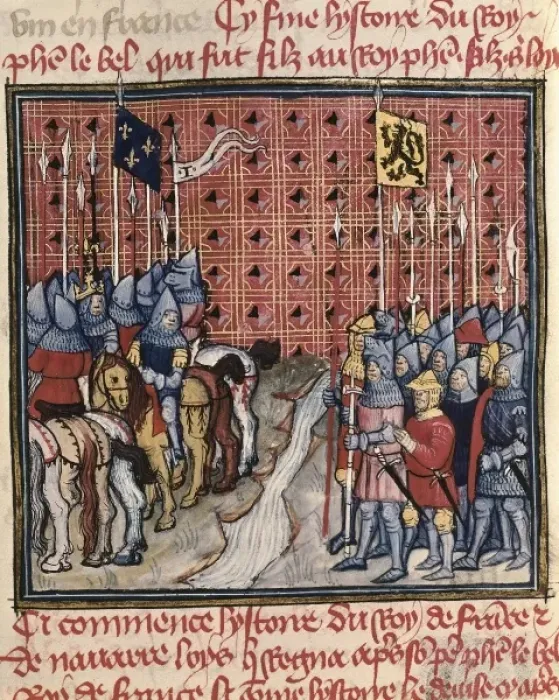 en france Cy fine lystoire du Roy
phe le bel qui fut filz au roy phe filz s loy
Ci commence lystoire du Roy de france z
de navarre loys q Regna aps so pe phe le bel
Roy de france Et lystoire